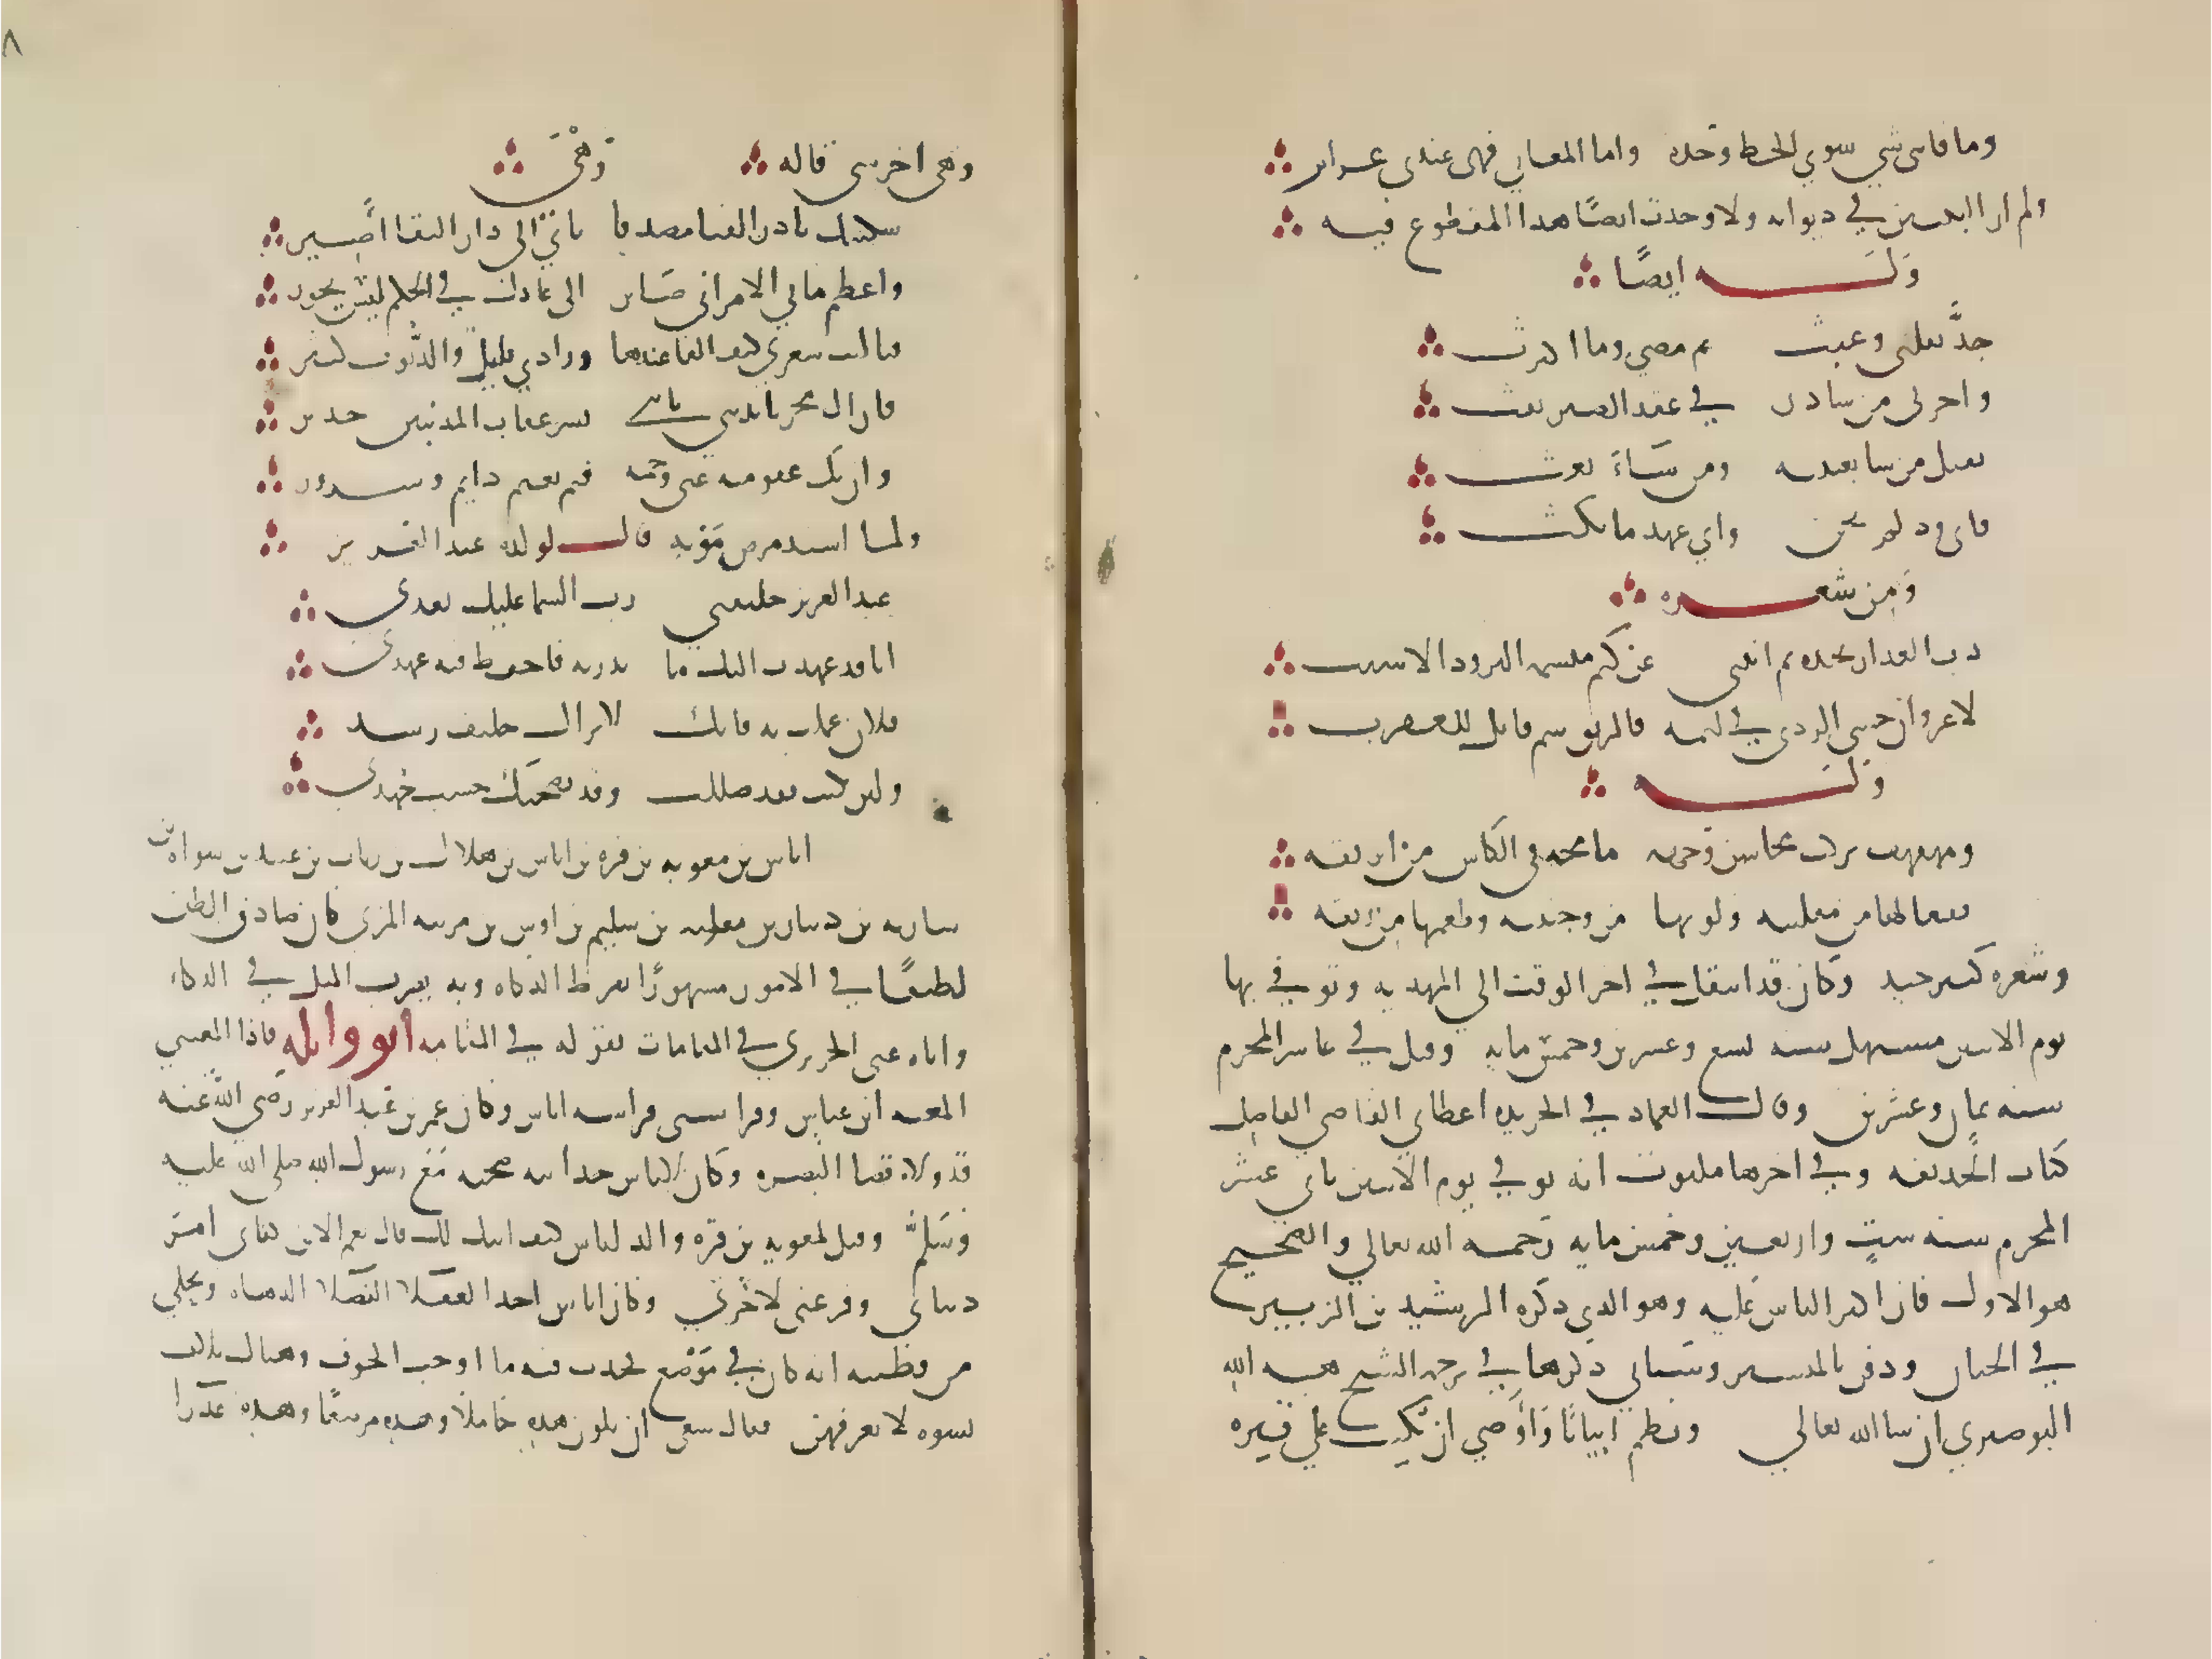 وما فاتني شي سوي الحظ وحده واما المعاني فهي عندي غرائر
ولم ار البيتين في ديوانه ولا وجدت ايضًا هذا المقطوع فيه
وَلَه ايضًا
جدَّ بقلبي وعبث ثم مضي وما اكترث
واحربي من شادن في عقد الصبر نفث
يقتل من شا بعينيه ومن شَاءَ بعث
فاي ود لم يخن واي عهد ما نكث
وَمِن شعره
دب العذار بخده ثم انثني عن لثم مبسمه البرود الاشنب
لا غرو ان خشي الردي في لثمه فالريق سم قاتل للعقرب
وَلَه
ومهفهف شركت محاسن وجهه ما مجه في الكاس من ابريقه
ففعالها من مقلتيه ولونها من وجنتيه وطعمها من ريقه
وشعره كثير جيد وكان قد انتقل في اخر الوقت الي المهديه وتوفي بها
يوم الاثنين مستهل سنه تسع وعشرين وخمس مايه وقيل في عاشر المحرم
سنه ثمان وعشرين وقال العماد في الخريده اعطاني القاضي الفاضل
كتاب الحديقه وفي اخرها مكتوب انه توفي يوم الاثنين ثاني عشر
المحرم سنه ستٍ واربعين وخمس مايه رَحمه الله تعالي والصحيح
هو الاول فان اكثر الناس عَليه وهو الذي ذكره الرشيد بن الزبير
في الجنان ودفن بالمنستير وسياتي ذكرها في ترجمه الشيخ هبه الله
البوصيري ان شا الله تعالي ونظم ابياتًا وَاوَصي ان تكتب علي قبره
وهي اخر شي قاله وَهْيَ
سكنتك يا دار الفنا مصدقا باني الي دار البقا اصِير
واعظم ما في الامر اني صَاير الي عادل في الحكم ليس يجور
فيا ليت شعري كيف القاه عندها وزادي قليل والذنوب كثير
فان اك مجزيا بذنبي فانني بشر عقاب المذنبين جدير
وان يك عفو منه عني ورحمه فثم نعيم دايم وسرور
ولما اشتد مرض مَوته قال لولده عبد العزيز
عبد العزيز خليفتي رب السما عليك بعدي
انا قد عهدت اليك ما تدريه فاحفظ فيه عهدي
فلان عملت به فانك لا تزال حليف رشد
ولين نكثت لقد ضللت وقد نصحتك حسب جهدي
اياس بن معويه بن قره بن اياس بن هلال بن رياب بن عبيد بن سواه بن
ساريه بن ذبيان بن ثعلبه بن سليم بن اوس بن مزينه المزني كان صادق الظن
لطيفًا في الامور مشهورًا بفرط الذكاه وبه يضرب المثل في الذكاء
واياه عني الحريري في المقامات بقوله في الثامنه ابو وايله فاذا المعيتي
المعيه ابن عباس وفراستي فراسه اياس وكان عمر بن عبد العزيز رضي الله عنه
قد ولاه قضا البصره وكان لاياس جدا بيه صحبه مع رسول الله صلي الله عليه
وَسَلم وقيل لمعويه بن قره والد اياس كيف ابنك لك قال نعم الابن كفاني امر
دنياي وفرغني لاخرتي وكان اياس احد العقلا الفضلا الدهاه ويحكي
من فطنته انه كان في مَوضع فحدث فيه ما اوجب الخوف وهناك ثلاث
نسوه لا يعرفهن فقال ينبغي ان تكون هذه حاملًا وهذه مرضعًا وهذه عذرا